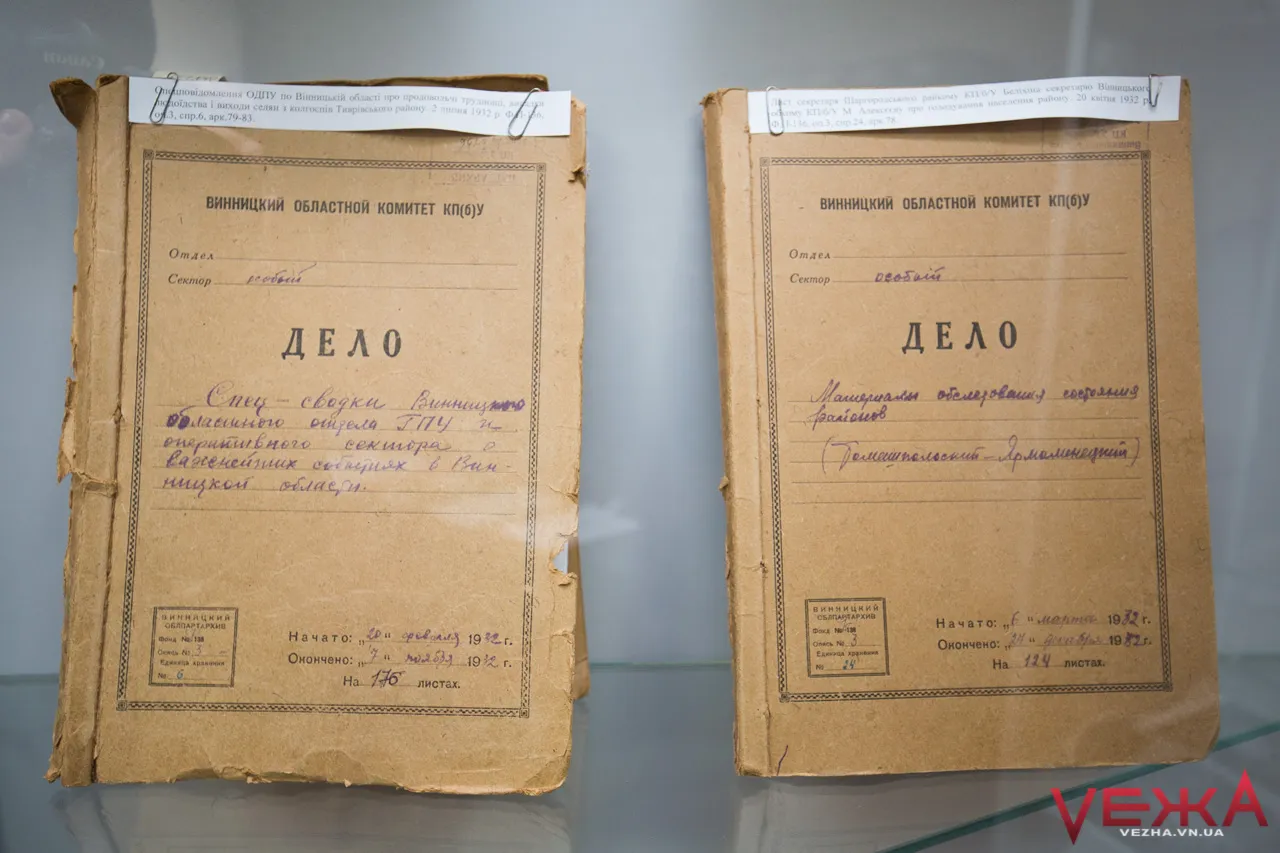 Спецповідомлення ОДПУ по Вінницькій області про продовольчі труднощі, випадки
людоїдства і виходи селян з колгоспів Тиврівського району. 2 липня 1932 р. Ф.П-136,
оп.3, спр.6, арк.79-83.
ВИННИЦКИЙ ОБЛАСТНОЙ КОМИТЕТ КП(б)У
Отдел
Сектор особый
ДЕЛО
Спец-сводки Винницкого
областного отдела ГПУ и
оперативного сектора о
важнейших событиях в Вин-
ницкой области.
ВИННИЦКИЙ
ОБЛПАРТАРХИВ
Фонд № 136
Опись № 3
Единица хранения
№ 6
Начато: „20" февраля 1932 г.
Окончено: „7" ноября 1932 г.
На 176 листах.
Лист секретаря Шаргородського райкому КП/б/У секретарю Вінницького
обкому КП/б/У М. Алексєєву про голодування населення району. 20 квітня 1932 р.
Ф.П-136, оп.3, спр.24, арк.78.
ВИННИЦКИЙ ОБЛАСТНОЙ КОМИТЕТ КП(б)У
Отдел
Сектор особый
ДЕЛО
Материалы обследования состояния
районов
(Томашпольский-Ярмолинецкий)
ВИННИЦКИЙ
ОБЛПАРТАРХИВ
Фонд № 136
Опись № 3
Единица хранения
№ 24
Начато: „6" марта 1932 г.
Окончено: „24" декабря 1932 г.
На 124 листах.
VЕЖА
VEZHA.VN.UA